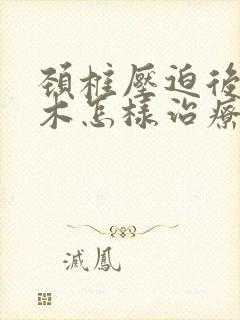 頚椎壓迫後
木怎樣治療
滅鳳